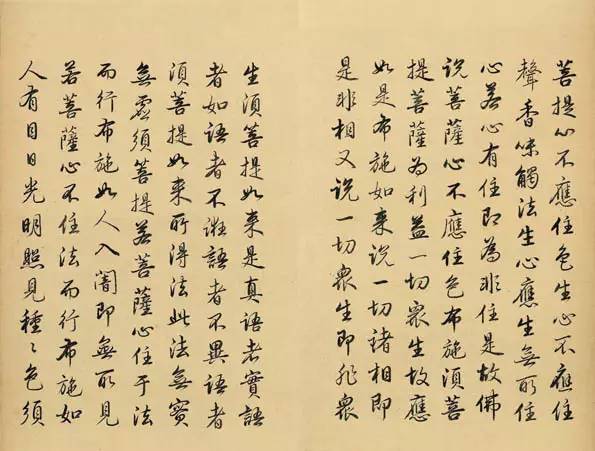 菩提心不應住色生心不應住
聲香味觸法生心應生無所住
心若心有住即為非住是故佛
說菩薩心不應住色布施須菩
提菩薩為利益一切衆生故應
如是布施如来說一切諸相即
是非相又說一切衆生即非衆
生須菩提如来是真語者實語
者如語者不誑語者不異語者
須菩提如来所得法此法無實
無虛須菩提若菩薩心住于法
而行布施如人入闇即無所見
若菩薩心不住法而行布施如
人有目日光明照見種〻色須